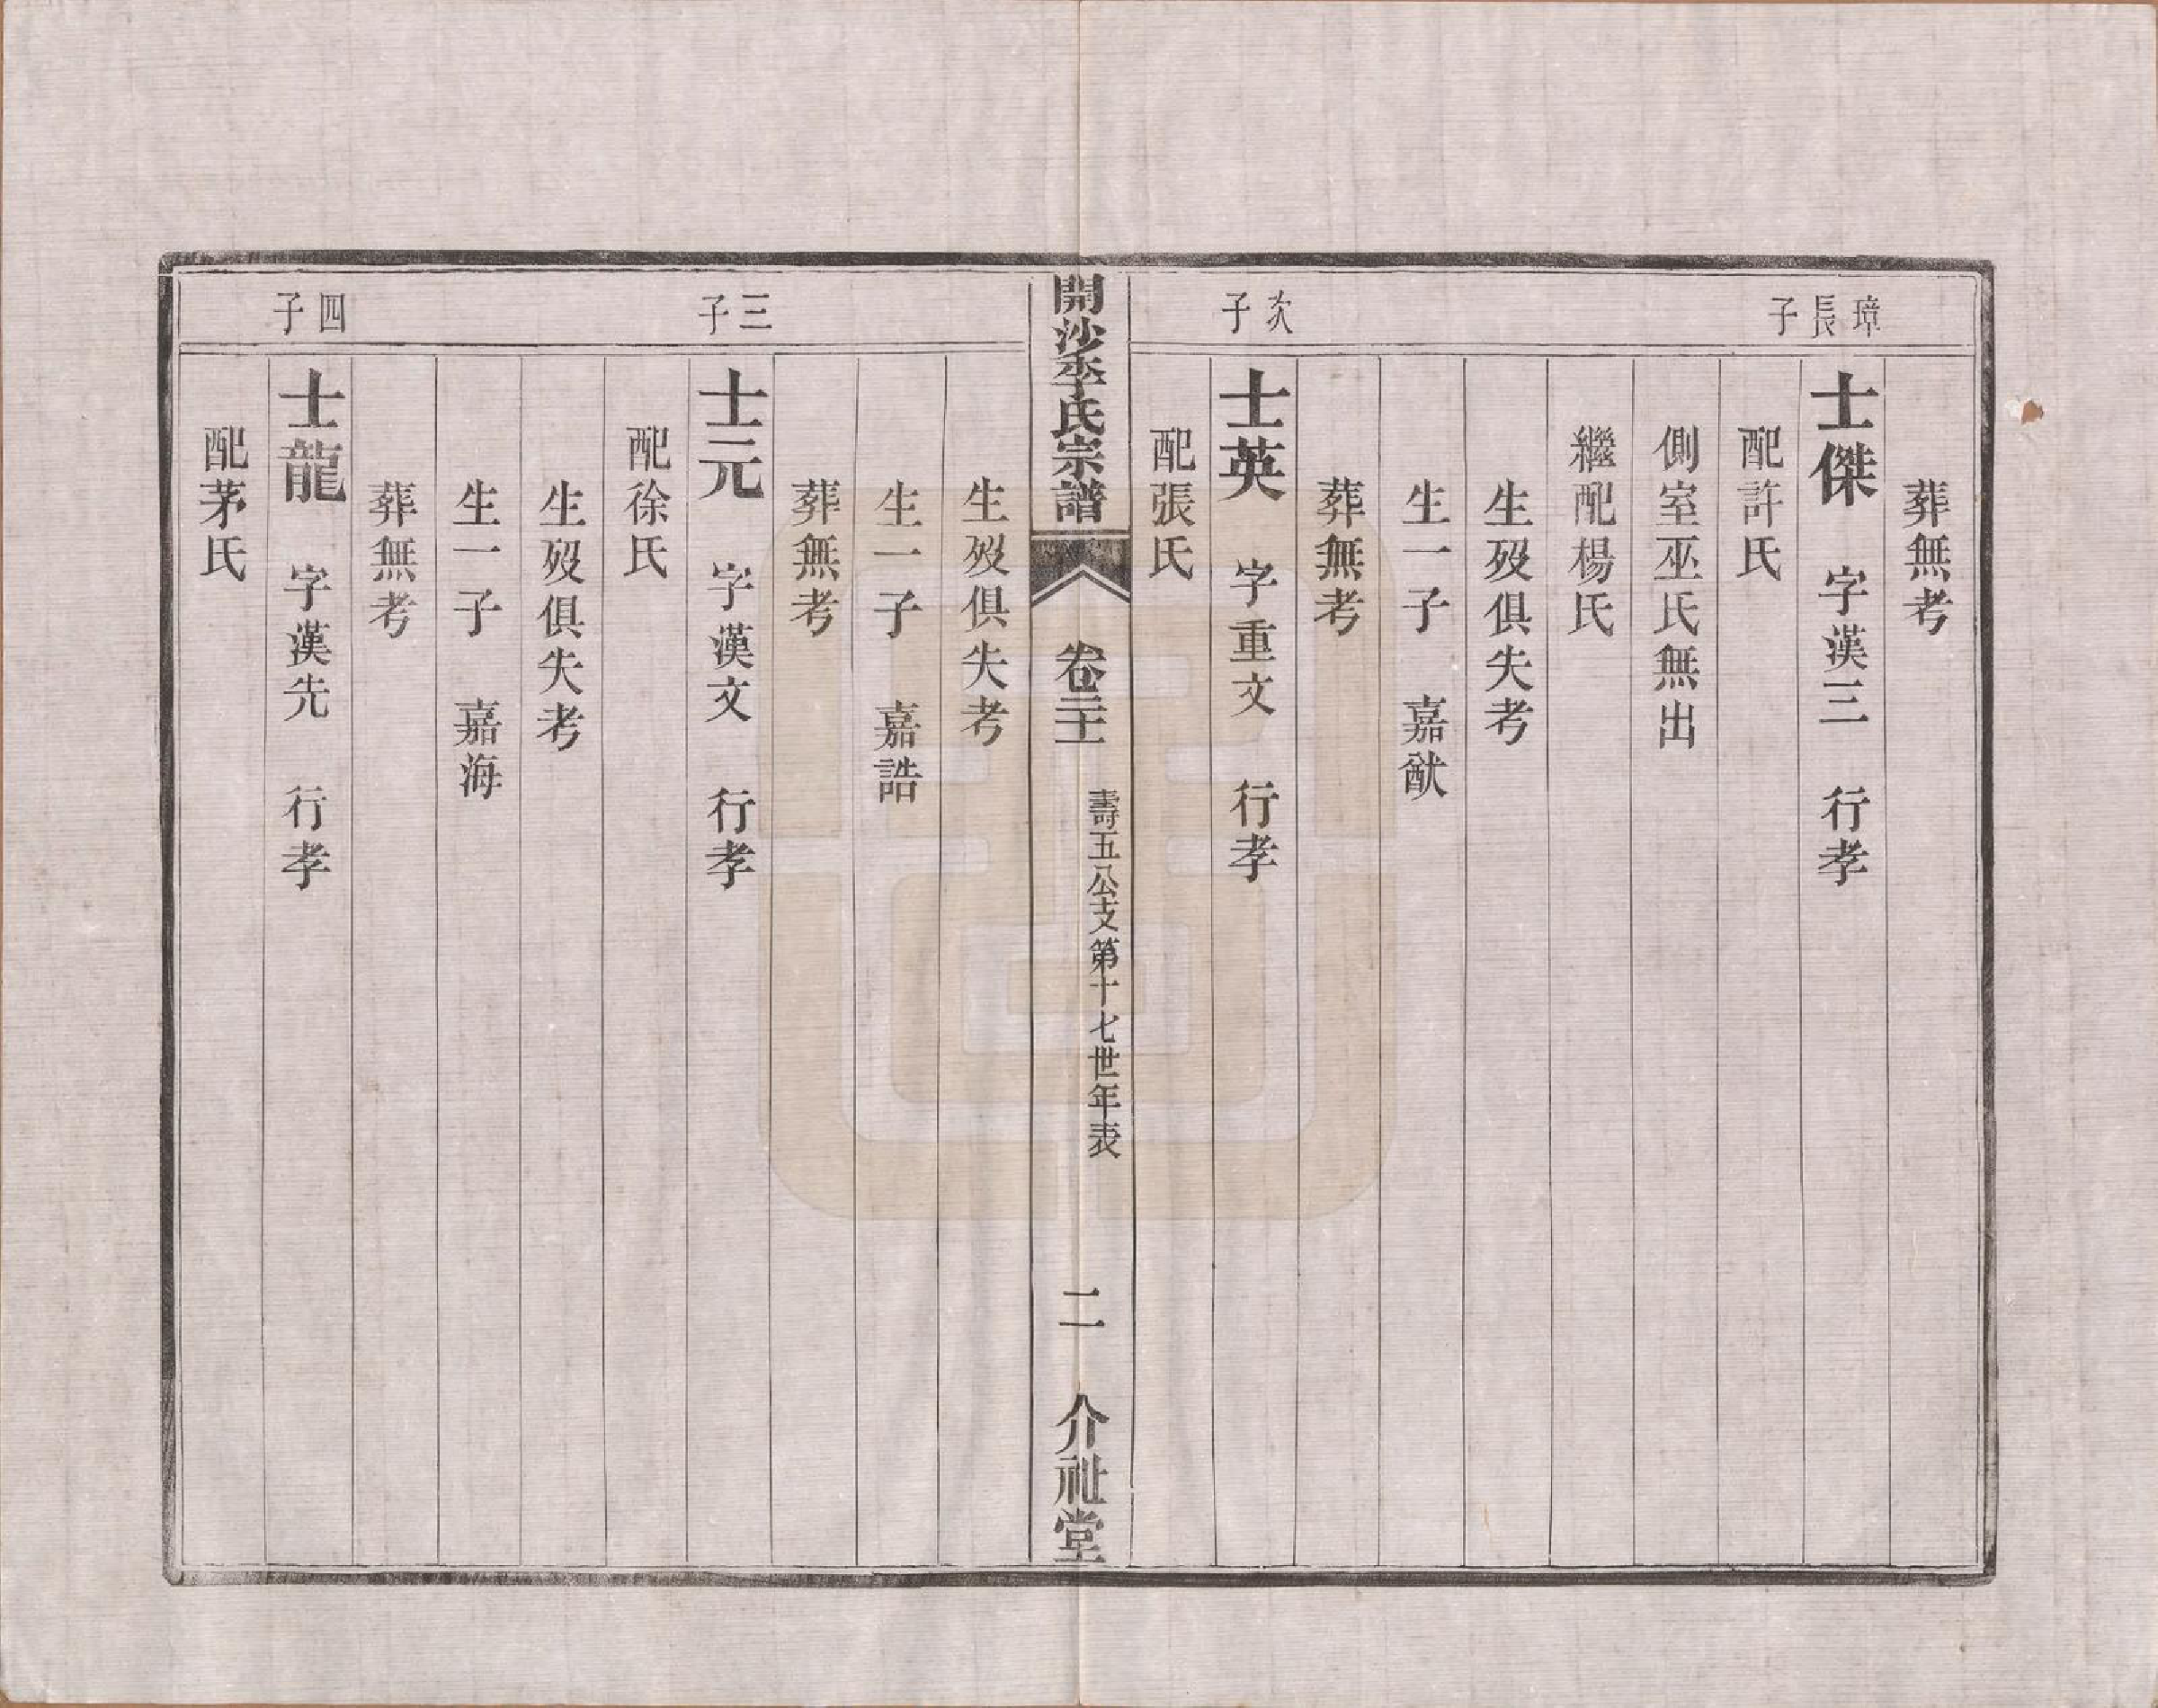 葬無考
璋長子
士傑　字漢三　行孝
配許氏
側室巫氏無出
繼配楊氏
生歿俱失考
生一子　嘉猷
葬無考
次子
士英　字重文　行孝
配張氏
開沙李氏宗譜
卷二十二
壽五八公支第十七世年表
二
介祉堂
生歿俱失考
生一子　嘉誥
葬無考
三子
士元　字漢文　行孝
配徐氏
生歿俱失考
生一子　嘉海
葬無考
四子
士龍　字漢先　行孝
配茅氏